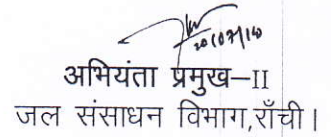 20/07/10
अभियंता प्रमुख–II
जल संसाधन विभाग,राँची।